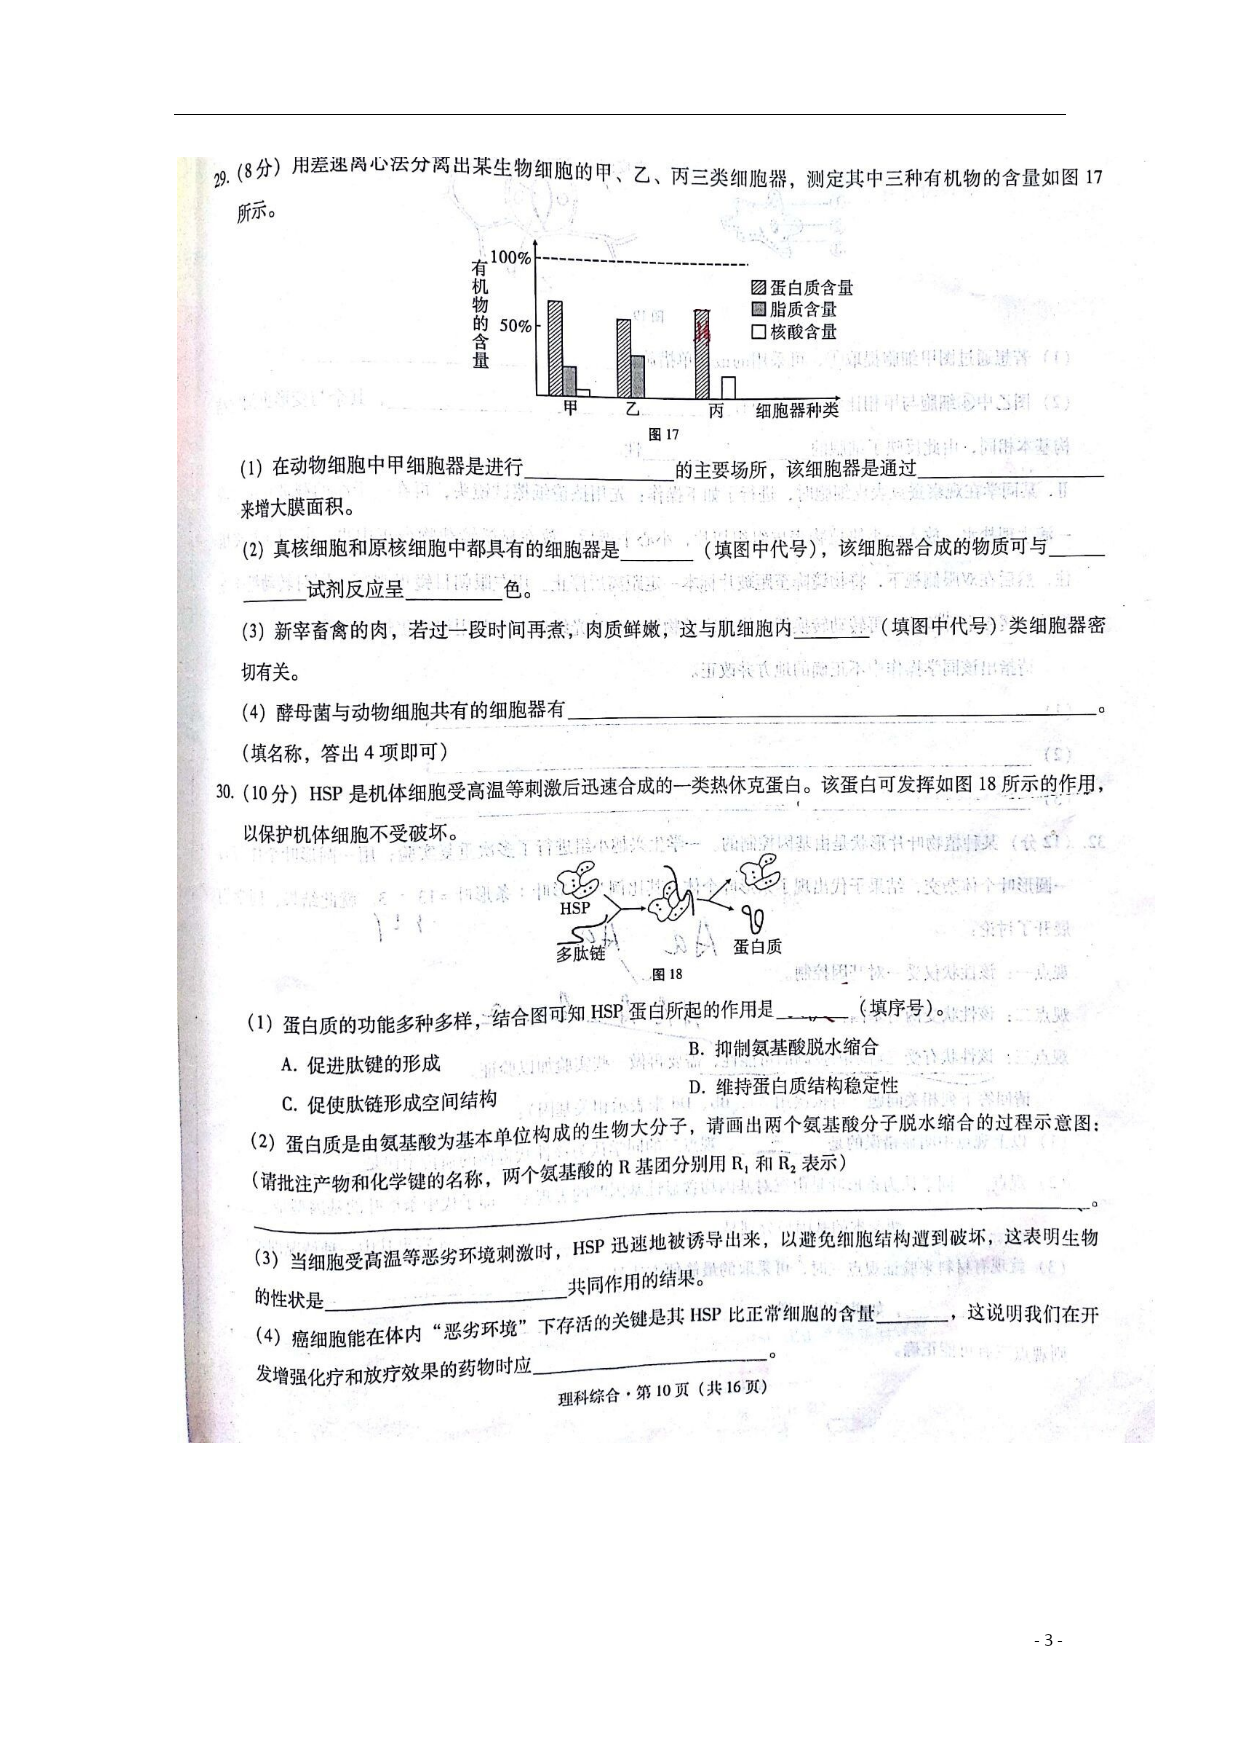 29. (8分) 用差速离心法分离出某生物细胞的甲、乙、丙三类细胞器，测定其中三种有机物的含量如图 17
所示。
有机物的含量
100%
50%
蛋白质含量
脂质含量
核酸含量
甲 乙 丙 细胞器种类
图 17
(1) 在动物细胞中甲细胞器是进行____________的主要场所，该细胞器是通过____________
来增大膜面积。
(2) 真核细胞和原核细胞中都具有的细胞器是______（填图中代号），该细胞器合成的物质可与_____
_____试剂反应呈________色。
(3) 新宰畜禽的肉，若过一段时间再煮，肉质鲜嫩，这与肌细胞内______（填图中代号）类细胞器密
切有关。
(4) 酵母菌与动物细胞共有的细胞器有____________________________________。
(填名称，答出 4 项即可)
30. (10分) HSP 是机体细胞受高温等刺激后迅速合成的一类热休克蛋白。该蛋白可发挥如图 18 所示的作用，
以保护机体细胞不受破坏。
HSP
多肽链
蛋白质
图 18
(1) 蛋白质的功能多种多样，结合图可知 HSP 蛋白所起的作用是______（填序号）。
A. 促进肽键的形成 B. 抑制氨基酸脱水缩合
C. 促使肽链形成空间结构 D. 维持蛋白质结构稳定性
(2) 蛋白质是由氨基酸为基本单位构成的生物大分子，请画出两个氨基酸分子脱水缩合的过程示意图：
(请批注产物和化学键的名称，两个氨基酸的 R 基团分别用 R₁ 和 R₂ 表示)
____________________________________________________________。
(3) 当细胞受高温等恶劣环境刺激时，HSP 迅速地被诱导出来，以避免细胞结构遭到破坏，这表明生物
的性状是____________________共同作用的结果。
(4) 癌细胞能在体内“恶劣环境”下存活的关键是其 HSP 比正常细胞的含量______，这说明我们在开
发增强化疗和放疗效果的药物时应____________________。
理科综合·第 10 页（共 16 页）
- 3 -